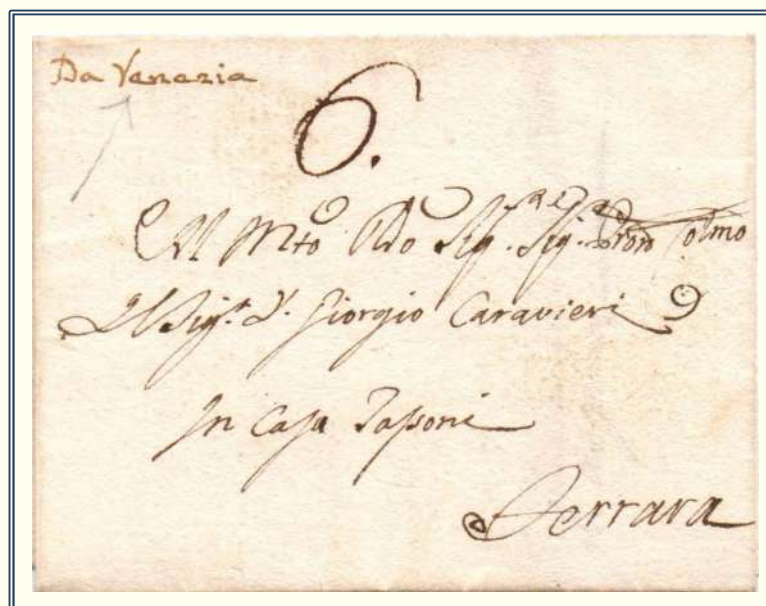 Da Venezia
6.
Al Mto Rdo Sigr Sigr Pron Colmo
Il Sigr D. Giorgio Caravieri
In Casa Tassoni
Ferrara